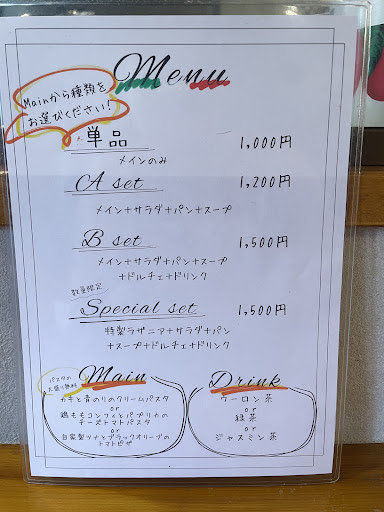 Menu
Mainから種類を
お選びください!
単品 1,000円
メインのみ
A set 1,200円
メイン+サラダ+パン+スープ
B set 1,500円
メイン+サラダ+パン+スープ
+ドルチェ+ドリンク
数量限定
Special set 1,500円
特製ラザニア+サラダ+パン
+スープ+ドルチェ+ドリンク
パスタの
大盛り無料
Main
カキと青のりのクリームパスタ
or
鶏ももコンフィとパプリカの
チーズトマトパスタ
or
自家製ツナとブラックオリーブの
トマトピザ
Drink
ウーロン茶
or
緑茶
or
ジャスミン茶